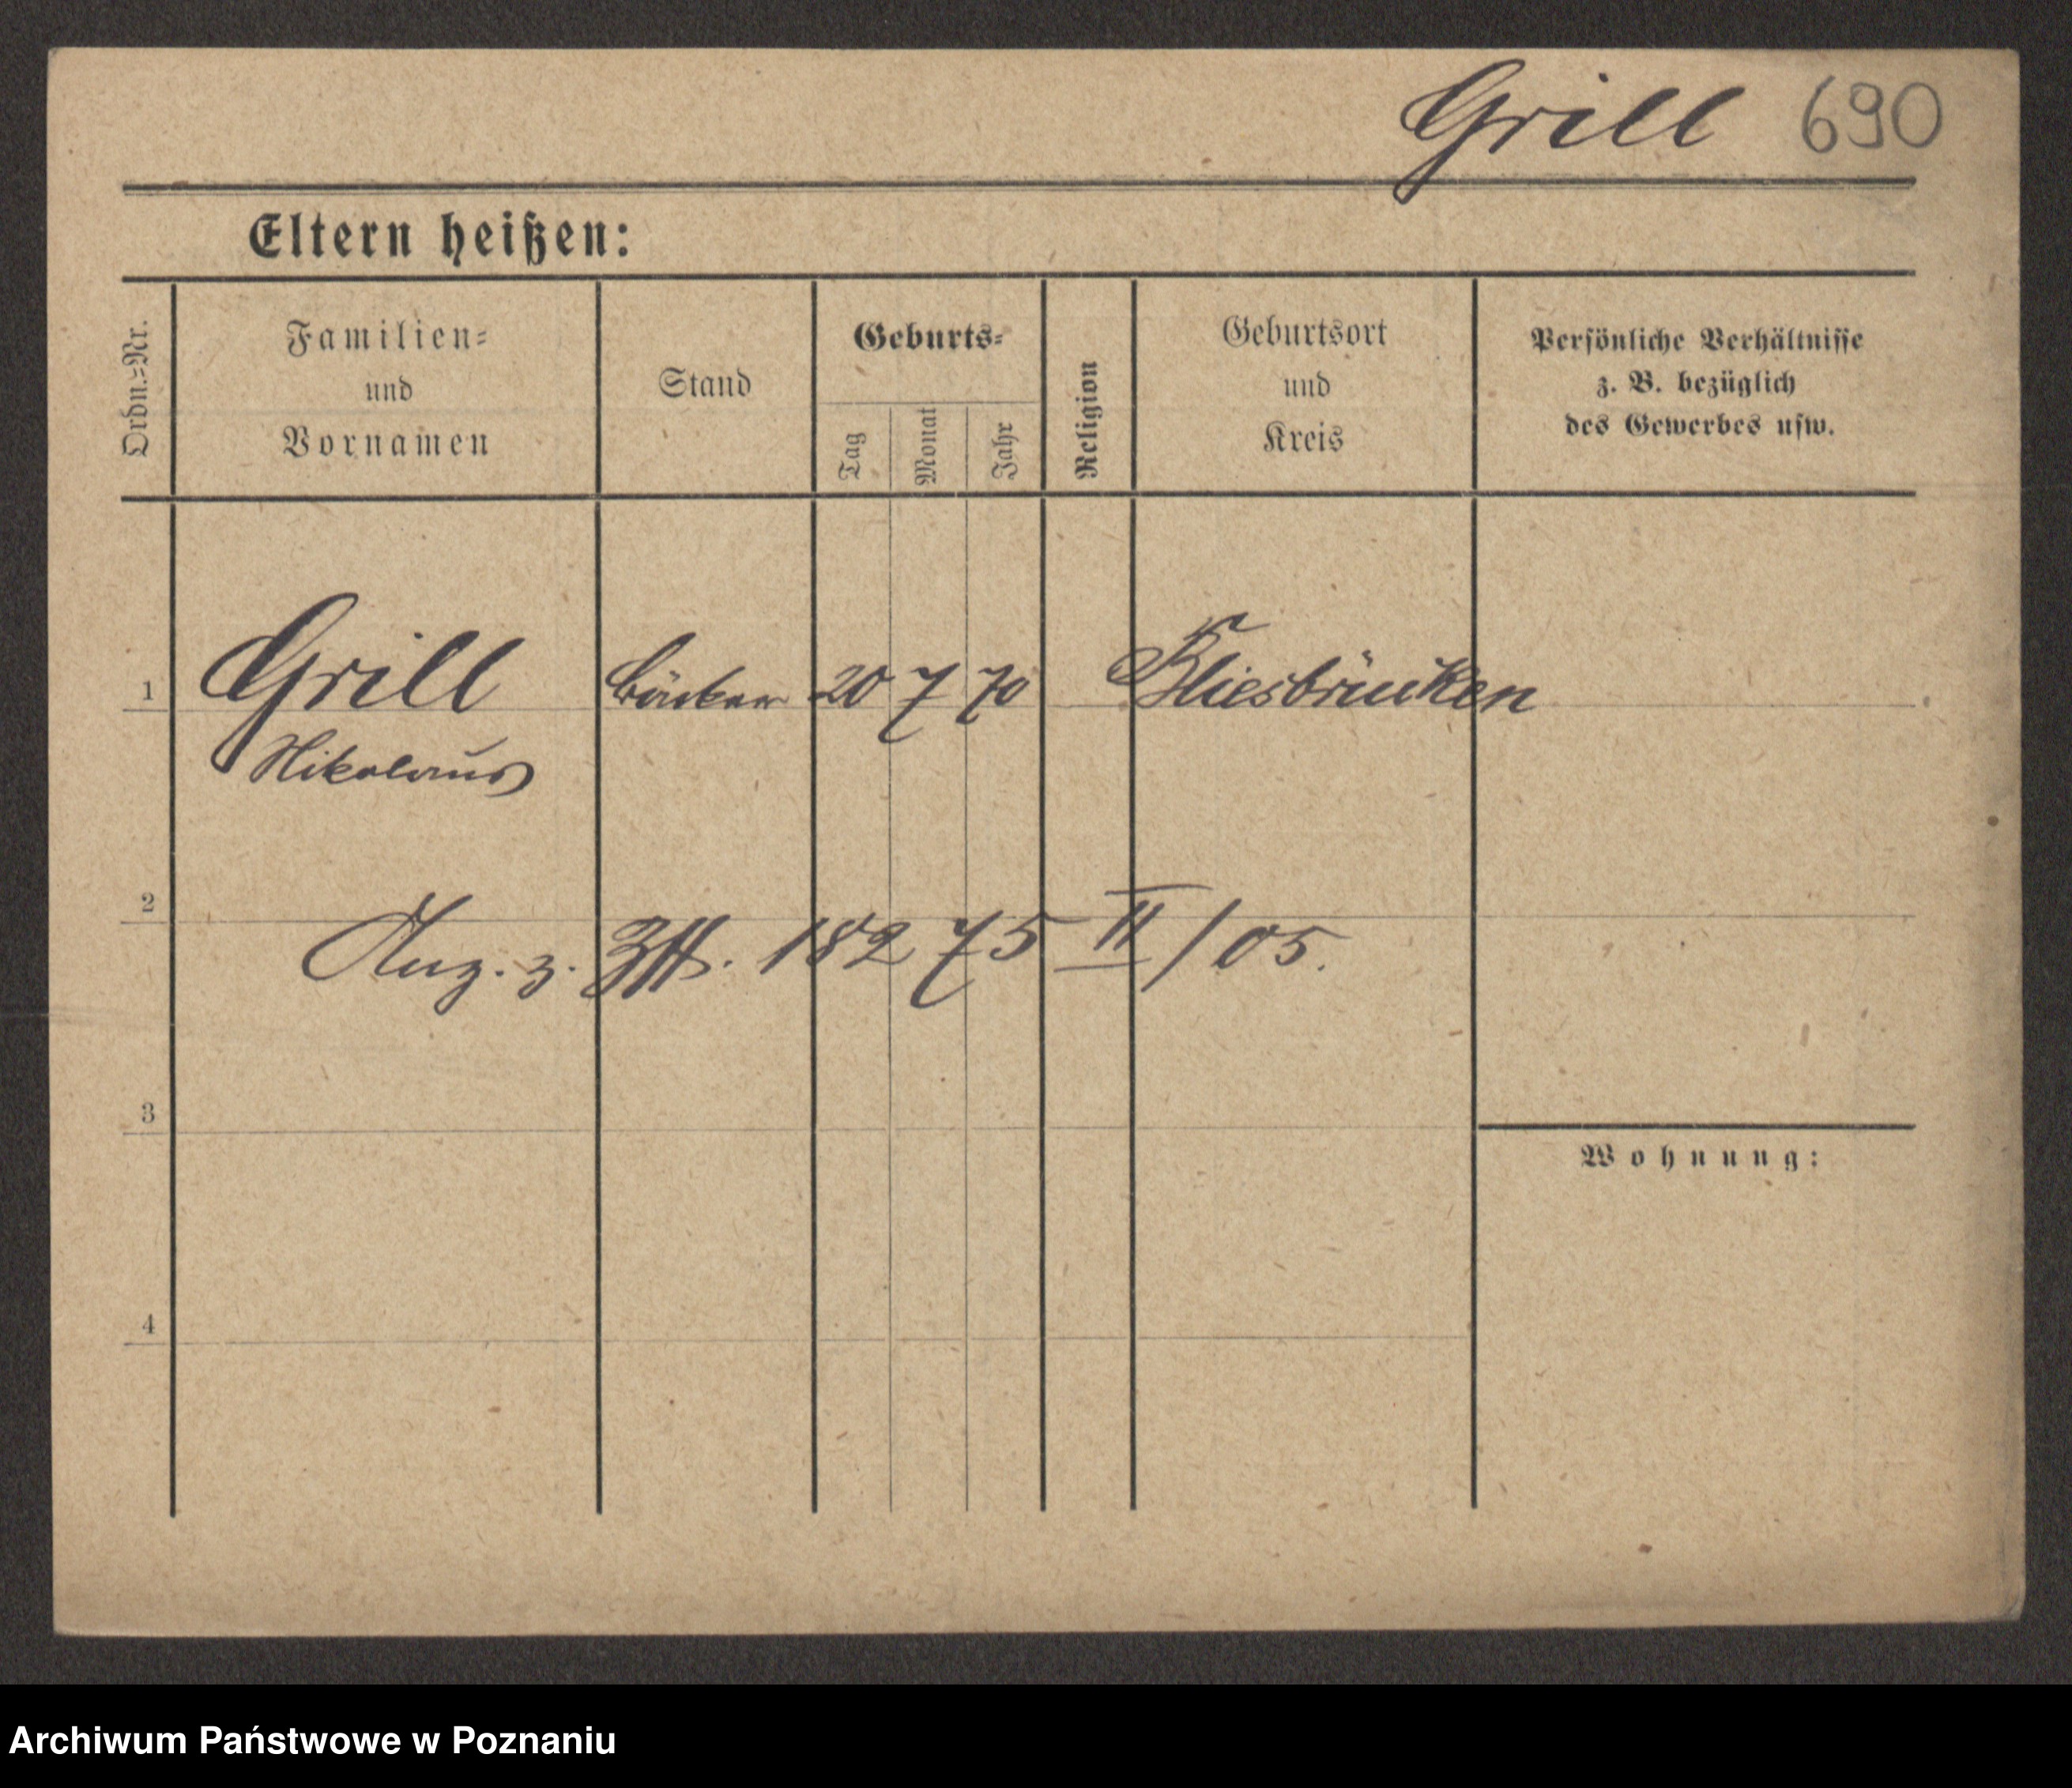 Grill 690
Eltern heißen:
Ordn.-Nr.
Familien-
und
Vornamen
Stand
Geburts-
Tag
Monat
Jahr
Religion
Geburtsort
und
Kreis
Persönliche Verhältnisse
z. B. bezüglich
des Gewerbes usw.
1 Grill Bäcker 20 7 70 Bliesbrücken
Nikolaus
2
Aug. z. 18275 II/05.
3
Wohnung:
4
Archiwum Państwowe w Poznaniu